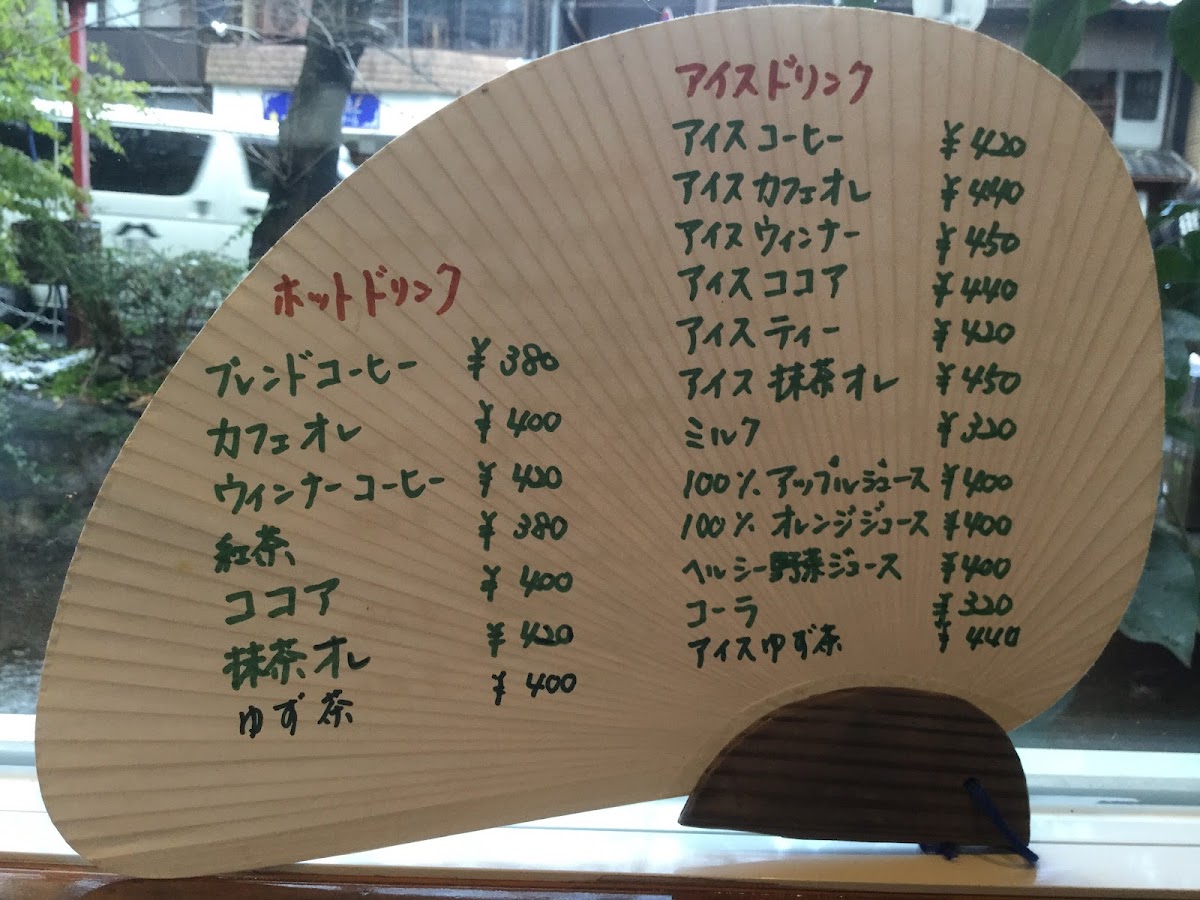 ホットドリンク
ブレンドコーヒー ¥380
カフェオレ ¥400
ウィンナーコーヒー ¥420
紅茶 ¥380
ココア ¥400
抹茶オレ ¥420
ゆず茶 ¥400
アイスドリンク
アイスコーヒー ¥420
アイスカフェオレ ¥440
アイスウィンナー ¥450
アイスココア ¥440
アイスティー ¥420
アイス抹茶オレ ¥450
ミルク ¥320
100%アップルジュース ¥400
100%オレンジジュース ¥400
ヘルシー野菜ジュース ¥400
コーラ ¥320
アイスゆず茶 ¥440